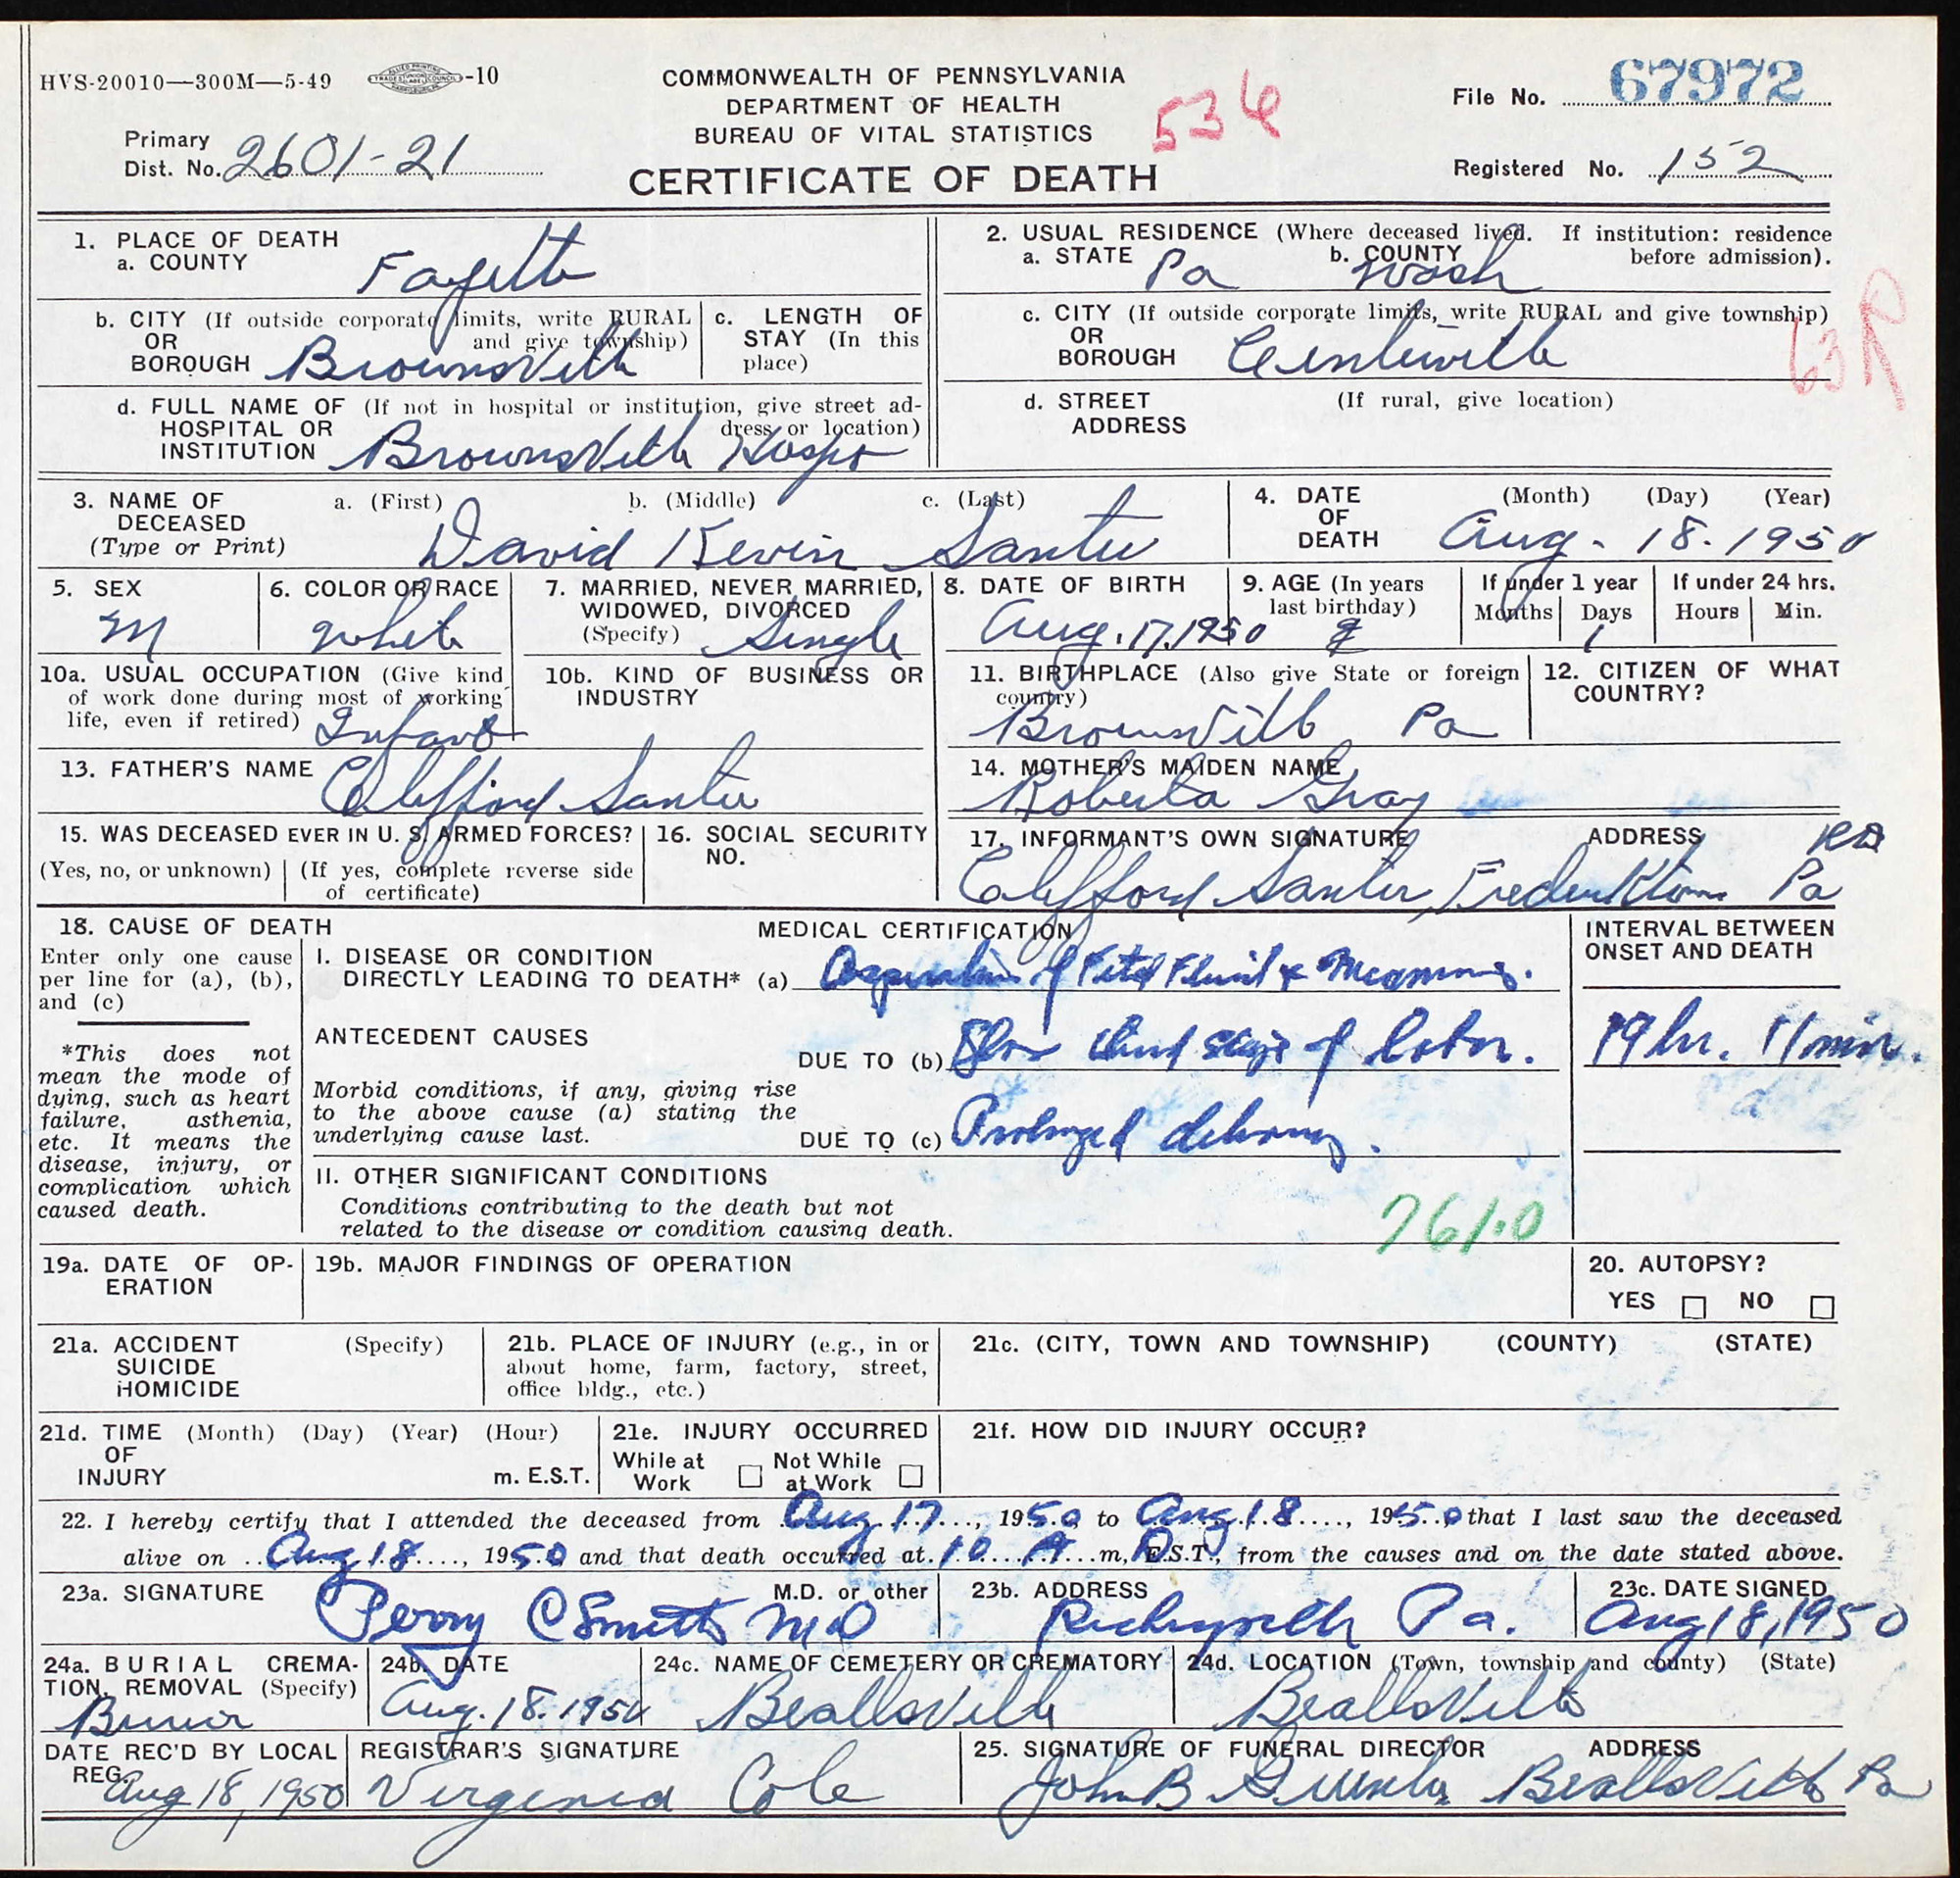 HVS-20010—300M—5-49 -10
COMMONWEALTH OF PENNSYLVANIA
DEPARTMENT OF HEALTH
BUREAU OF VITAL STATISTICS
CERTIFICATE OF DEATH
536
File No. 67972
Primary
Dist. No. 2601-21
Registered No. 152
1. PLACE OF DEATH
a. COUNTY Fayette
2. USUAL RESIDENCE (Where deceased lived. If institution: residence
before admission).
a. STATE Pa b. COUNTY Wash
b. CITY (If outside corporate limits, write RURAL
OR and give township)
BOROUGH Brownsville
c. LENGTH OF
STAY (In this
place)
c. CITY (If outside corporate limits, write RURAL and give township)
OR
BOROUGH Centerville
63R
d. FULL NAME OF (If not in hospital or institution, give street ad-
HOSPITAL OR dress or location)
INSTITUTION Brownsville Hosp
d. STREET (If rural, give location)
ADDRESS
3. NAME OF
DECEASED
(Type or Print)
a. (First) b. (Middle) c. (Last)
David Kevin
4. DATE
OF
DEATH
(Month) (Day) (Year)
Aug. 18. 1950
5. SEX
M
6. COLOR OR RACE
White
7. MARRIED, NEVER MARRIED,
WIDOWED, DIVORCED
(Specify) Single
8. DATE OF BIRTH
Aug. 17. 1950
9. AGE (In years
last birthday)
If under 1 year
Months Days
1
If under 24 hrs.
Hours Min.
10a. USUAL OCCUPATION (Give kind
of work done during most of working
life, even if retired) Infant
10b. KIND OF BUSINESS OR
INDUSTRY
11. BIRTHPLACE (Also give State or foreign
country)
Brownsville Pa
12. CITIZEN OF WHAT
COUNTRY?
13. FATHER'S NAME Clifford
14. MOTHER'S MAIDEN NAME
Roberta Gray
15. WAS DECEASED EVER IN U. S. ARMED FORCES?
(Yes, no, or unknown) (If yes, complete reverse side
of certificate)
16. SOCIAL SECURITY
NO.
17. INFORMANT'S OWN SIGNATURE ADDRESS RD
Clifford Fredericktown Pa
18. CAUSE OF DEATH
Enter only one cause
per line for (a), (b),
and (c)
*This does not
mean the mode of
dying, such as heart
failure, asthenia,
etc. It means the
disease, injury, or
complication which
caused death.
MEDICAL CERTIFICATION
I. DISEASE OR CONDITION
DIRECTLY LEADING TO DEATH* (a) Aspiration of Fetal Fluid &
ANTECEDENT CAUSES
DUE TO (b) stage of labor.
Morbid conditions, if any, giving rise
to the above cause (a) stating the
underlying cause last.
DUE TO (c) Prolonged delivery.
II. OTHER SIGNIFICANT CONDITIONS
Conditions contributing to the death but not
related to the disease or condition causing death.
761.0
INTERVAL BETWEEN
ONSET AND DEATH
19 hr. 11 min.
19a. DATE OF OP-
ERATION
19b. MAJOR FINDINGS OF OPERATION
20. AUTOPSY?
YES NO
21a. ACCIDENT (Specify)
SUICIDE
HOMICIDE
21b. PLACE OF INJURY (e.g., in or
about home, farm, factory, street,
office bldg., etc.)
21c. (CITY, TOWN AND TOWNSHIP) (COUNTY) (STATE)
21d. TIME (Month) (Day) (Year) (Hour)
OF
INJURY m. E.S.T.
21e. INJURY OCCURRED
While at Not While
Work at Work
21f. HOW DID INJURY OCCUR?
22. I hereby certify that I attended the deceased from Aug 17, 1950 to Aug 18, 1950 that I last saw the deceased
alive on Aug 18, 1950 and that death occurred at 10 A m, D.S.T., from the causes and on the date stated above.
23a. SIGNATURE M.D. or other
Perry C Smith MD
23b. ADDRESS
Richeyville Pa.
23c. DATE SIGNED
Aug 18, 1950
24a. BURIAL CREMA-
TION, REMOVAL (Specify)
Burial
24b. DATE
Aug. 18. 1950
24c. NAME OF CEMETERY OR CREMATORY
Beallsville
24d. LOCATION (Town, township and county) (State)
Beallsville
DATE REC'D BY LOCAL
REG. Aug 18, 1950
REGISTRAR'S SIGNATURE
Virginia Cole
25. SIGNATURE OF FUNERAL DIRECTOR ADDRESS
John B Beallsville Pa